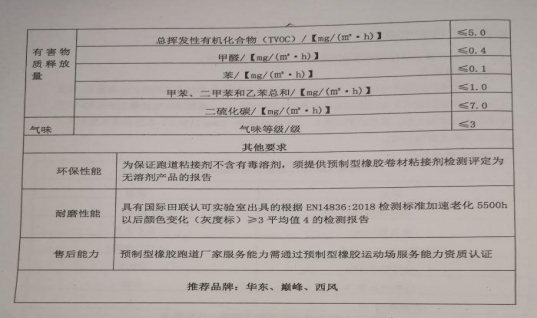 总挥发性有机化合物（TVOC）/【mg/(m²·h)】 ≤5.0
有害物质释放量 甲醛/【mg/(m²·h)】 ≤0.4
苯/【mg/(m²·h)】 ≤0.1
甲苯、二甲苯和乙苯总和/【mg/(m²·h)】 ≤1.0
二硫化碳/【mg/(m²·h)】 ≤7.0
气味 气味等级/级 ≤3
其他要求
环保性能 为保证跑道粘接剂不含有毒溶剂，须提供预制型橡胶卷材粘接剂检测评定为
无溶剂产品的报告
耐磨性能 具有国际田联认可实验室出具的根据 EN14836:2018 检测标准加速老化 5500h
以后颜色变化（灰度标）≥3 平均值 4 的检测报告
售后能力 预制型橡胶跑道厂家服务能力需通过预制型橡胶运动场服务能力资质认证
推荐品牌：华东、巅峰、西风